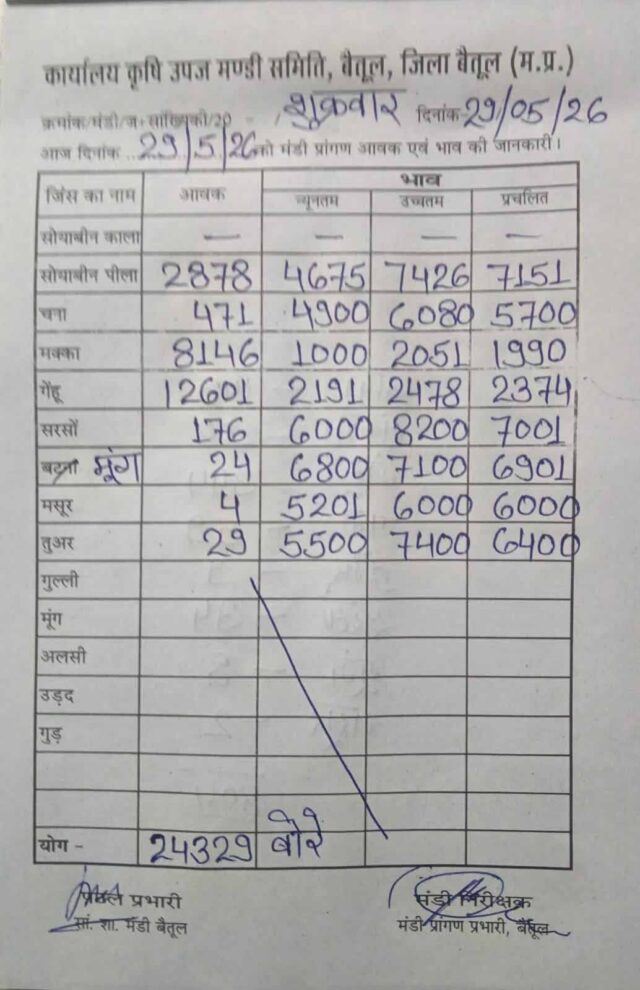 कार्यालय कृषि उपज मण्डी समिति, बैतूल, जिला बैतूल (म.प्र.)
क्रमांक/मंडी/ज.सांख्यिकी/20 - / शुक्रवार दिनांक 29/05/26
आज दिनांक ..29/5/26 को मंडी प्रांगण आवक एवं भाव की जानकारी।
जिंस का नाम आवक भाव
न्यूनतम उच्चतम प्रचलित
सोयाबीन काला — — — —
सोयाबीन पीला 2878 4675 7426 7151
चना 471 4900 6080 5700
मक्का 8146 1000 2051 1990
गेंहू 12601 2191 2478 2374
सरसों 176 6000 8200 7001
बटना मूंग 24 6800 7100 6901
मसूर 4 5201 6000 6000
तुअर 29 5500 7400 6400
गुल्ली
मूंग
अलसी
उड़द
गुड़
योग - 24329 बोरे
प्रभारी मंडी निरीक्षक
सां. शा. मंडी बैतूल मंडी प्रांगण प्रभारी, बैतूल